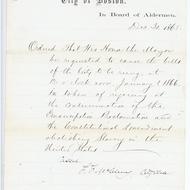 City of Boston.
In Board of Aldermen,
Dec. 30 1865.
Ordered, That His Honor the Mayor
be requested to cause the bells
of the City to be rung at
12 o'clock noon January 1, 1866,
in token of rejoicing at
the consummation of the
Emancipation Proclamation and
the Constitutional Amendment
abolishing Slavery in the
United States.
Attest
City Clerk